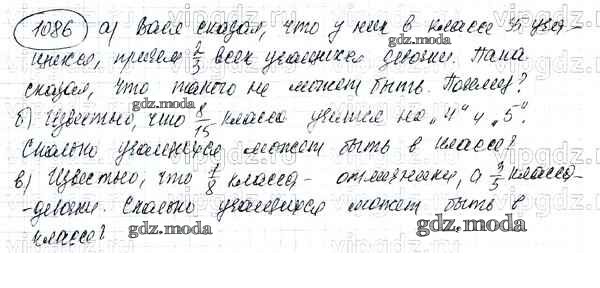 1086 а) Валя сказал, что у них в классе 35 уча-
щихся, причем 2/3 всех учащихся девочки. Папа
сказал, что такого не может быть. Почему?
б) Известно, что 8/15 класса учится на "4" и "5".
Сколько учащихся может быть в классе?
в) Известно, что 1/8 класса - отличники, а 3/5 класса-
-девочки. Сколько учащихся может быть в
классе?
gdz.moda
gdz.moda
gdz.moda
gdz.moda
gdz.moda
gdz.moda
vipgdz.ru
vipgdz.ru